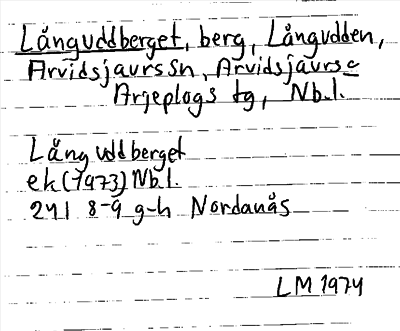 Långuddberget, berg, Långudden,
Arvidsjaurs sn, Arvidsjaurs-
Arjeplogs tg, Nb.l.
Långuddberget
ek (1973) Nb.l.
241 8-9 g-h Nordanås
LM 1974